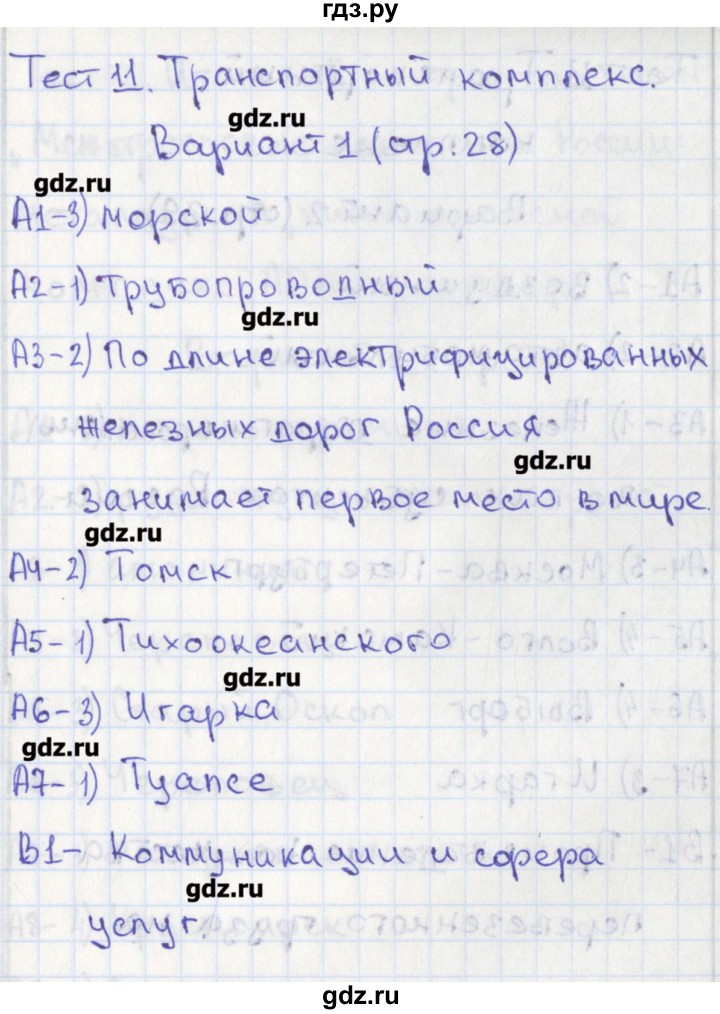 гдз.ру
Тест 11. Транспортный комплекс.
gdz.ru
Вариант 1 (стр. 28)
gdz.ru
А1-3) морской
А2-1) трубопроводный
gdz.ru
А3-2) По длине электрифицированных
железных дорог Россия
gdz.ru
занимает первое место в мире.
gdz.ru
А4-2) Томск
А5-1) Тихоокеанского
gdz.ru
А6-3) Игарка
gdz.ru
А7-1) Туапсе
В1- Коммуникации и сфера
gdz.ru
услуг.
gdz.ru